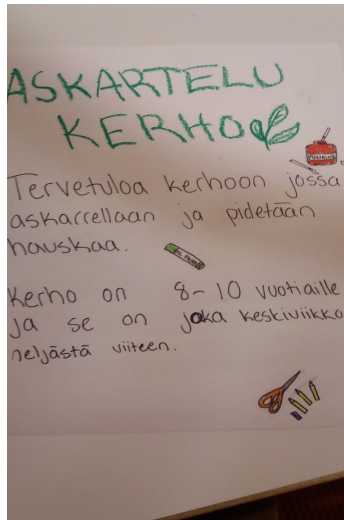 ASKARTELU
KERHO
Tervetuloa kerhoon jossa
askarrellaan ja pidetään
hauskaa.
Kerho on 8-10 vuotiaille
ja se on joka keskiviikko
neljästä viiteen.